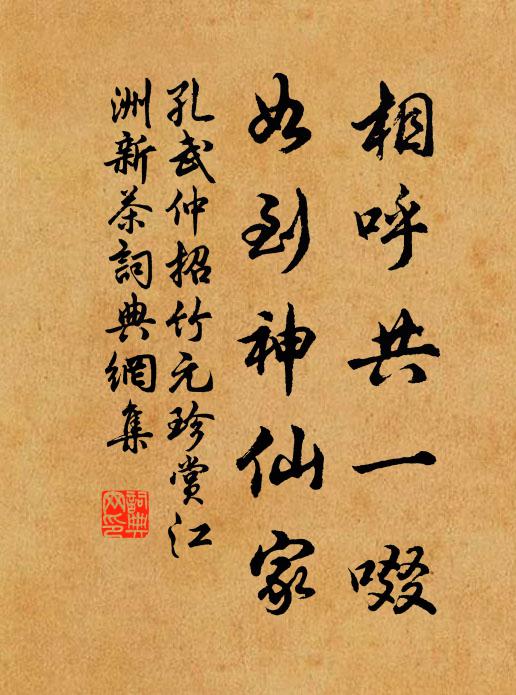 相呼共一啜
如到神仙家
孔武仲招竹元珍賞江
洲新茶詞典網集
詞典
网印